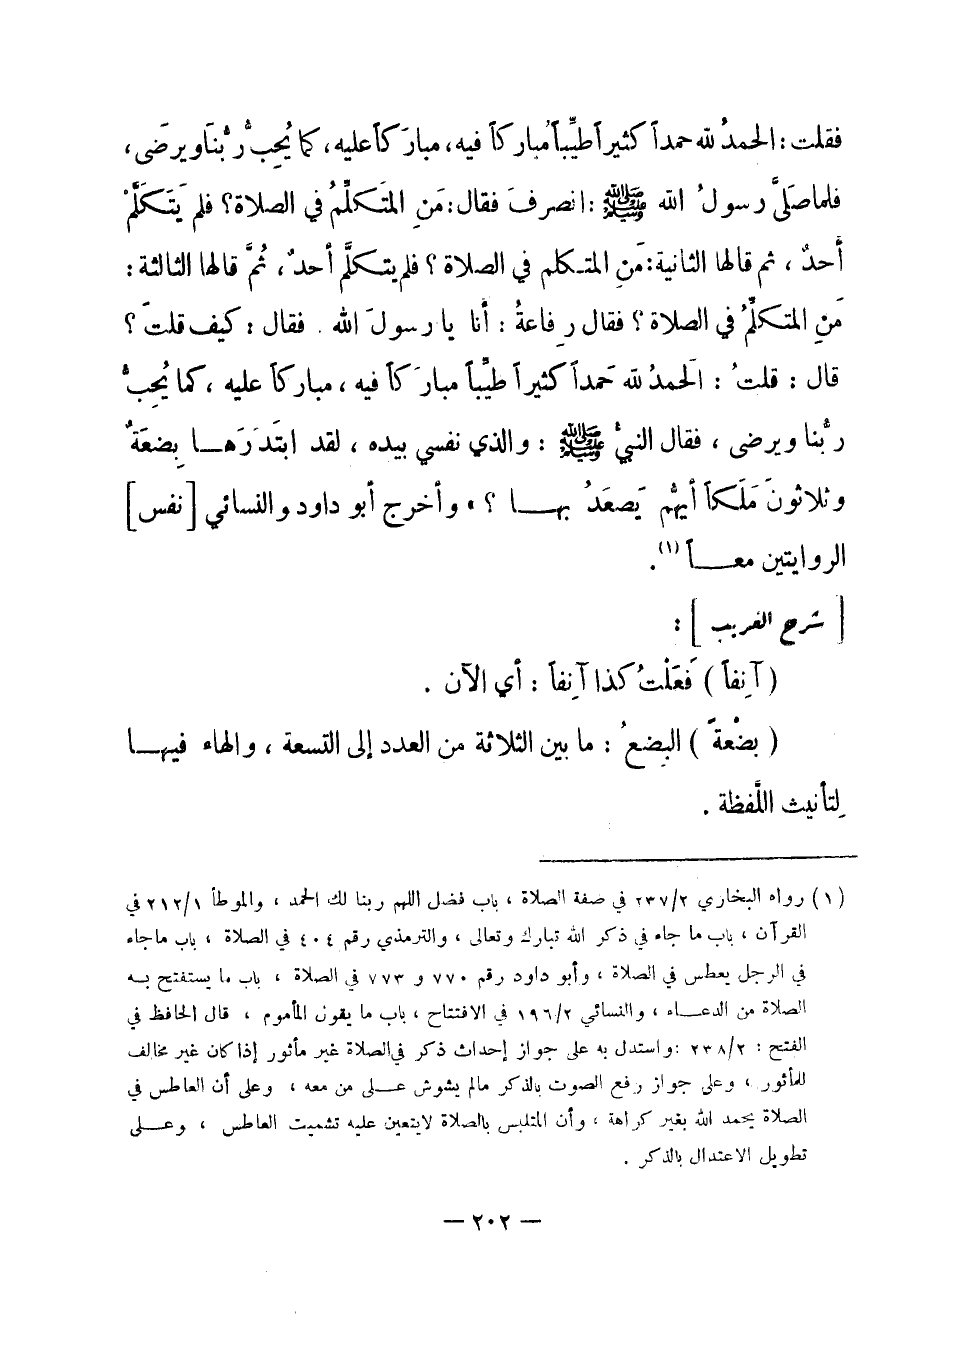 فقلت : الحمدُ لله حمداً كثيراً طيِّباً مُباركاً فيه، مبارَكاً عليه، كما يُحِبُّ رُّبنا ويرضَى،
فلما صَلَّى رسولُ الله ﷺ : انصرفَ فقال : مَنِ المتَكلِّمُ في الصلاة؟ فلم يَتَكَلَّمْ
أحدٌ ، ثم قالها الثانية : مَنِ المتكلم في الصلاة ؟ فلم يتكلَّم أحدٌ ، ثُمَّ قالها الثالثة :
مَنِ المتكلِّمُ في الصلاة ؟ فقال رِفاعةُ : أنا يا رسولَ الله . فقال : كيف قلتَ ؟
قال : قلتُ : الَحمدُ لله حَمداً كثيراً طيِّباً مبارَكاً فيه ، مباركاً عليه ، كما يُحِبُّ
ربُّنا ويرضى ، فقال النبيُّ ﷺ : والذي نفسي بيده ، لقد ابتَدَرَهــا بِضعَةٌ
وثلاثونَ مَلَكاً أيهُّم يَصعَدُ بهــا ؟ » وأخرج أبو داود والنسائي [ نفس ]
الروايتين معــاً (١) .
[ شرح الغريب ] :
( آنِفاً ) فَعَلْتُ كذا آنِفاً : أي الآن .
( بِضْعةً ) البِضعُ : ما بين الثلاثة من العدد إلى التسعة ، والهاء فيهــا
لِتأنيث اللَّفظة .
(١) رواه البخاري ٢٣٧/٢ في صفة الصلاة ، باب فضل اللهم ربنا لك الحمد ، والموطأ ٢١٢/١ في
القرآن ، باب ما جاء في ذكر الله تبارك وتعالى ، والترمذي رقم ٤٠٤ في الصلاة ، باب ماجاء
في الرجل يعطس في الصلاة ، وأبو داود رقم ٧٧٠ و ٧٧٣ في الصلاة ، باب ما يستفتح بــه
الصلاة من الدعــاء ، والنسائي ١٩٦/٢ في الافتتاح ، باب ما يقول المأموم ، قال الحافظ في
الفتح : ٢٣٨/٢ : واستدل به على جواز إحداث ذكر في الصلاة غير مأثور إذا كان غير مخالف
للمأثور ، وعلى جواز رفع الصوت بالذكر مالم يشوش عــلى من معه ، وعلى أن العاطس في
الصلاة يحمد الله بغير كراهة ، وأن المتلبس بالصلاة لايتعين عليه تشميت العاطس ، وعــلى
تطويل الاعتدال بالذكر .
— ٢٠٢ —